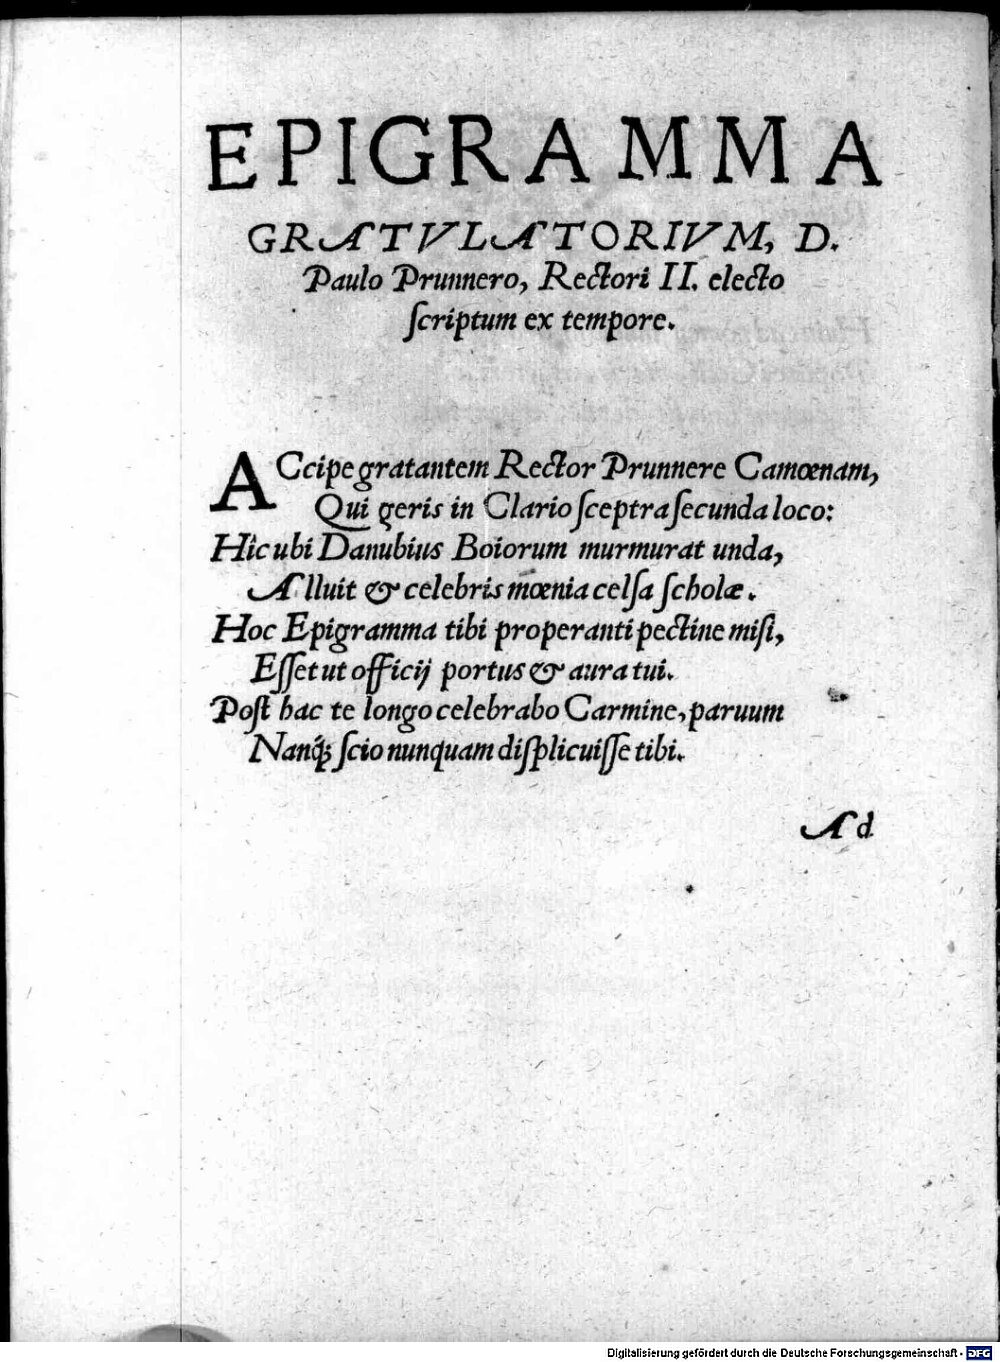 EPIGRAMMA
GRATVLATORIVM, D.
Paulo Prunnero, Rectori II. electo
ſcriptum ex tempore.
ACcipe gratantem Rector Prunnere Camœnam,
Qui geris in Clario ſceptra ſecunda loco:
Hîc ubi Danubius Boiorum murmurat unda,
Alluit & celebris mœnia celſa ſcholæ.
Hoc Epigramma tibi properanti pectine miſi,
Eſſet ut officij portus & aura tui.
Poſt hac te longo celebrabo Carmine, paruum
Nanq́; ſcio nunquam diſplicuiſſe tibi.
Ad
Digitalisierung gefördert durch die Deutsche Forschungsgemeinschaft - DFG